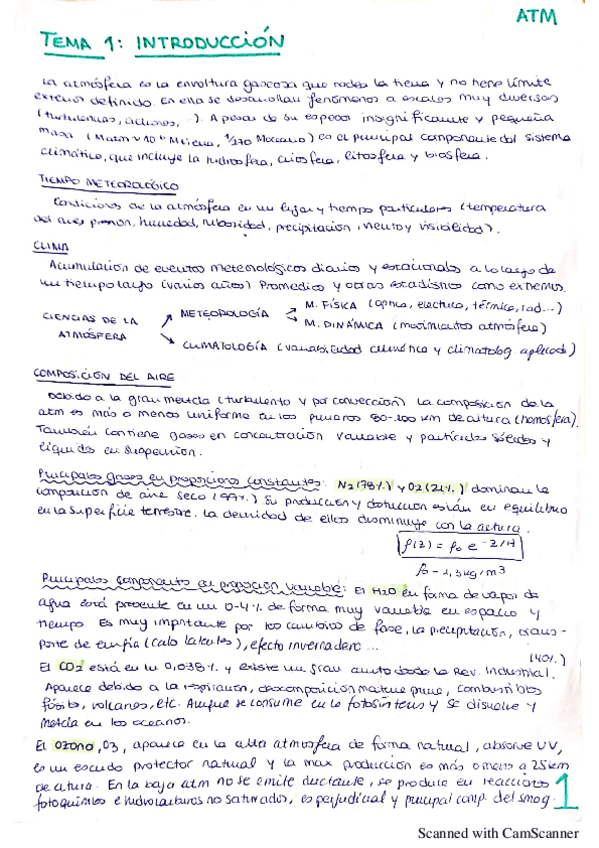 ATM
TEMA 1: INTRODUCCIÓN
La atmósfera es la envoltura gaseosa que rodea la tierra y no tiene límite
exterior definido. En ella se desarrollan fenómenos a escalas muy diversas
(turbulencias, ciclones, ...). A pesar de su espesor insignificante y pequeña
masa (Matm ~ 10⁻⁶ Mtierra, 1/270 Moceano) es el principal componente del sistema
climático, que incluye la hidrosfera, criosfera, litosfera y biosfera.
TIEMPO METEOROLÓGICO
Condiciones de la atmósfera en un lugar y tiempo particulares (temperatura
del aire, presión, humedad, nubosidad, precipitación, viento y visibilidad).
CLIMA
Acumulación de eventos meteorológicos diarios y estacionales a lo largo de
un tiempo largo (varios años) Promedios y otros estadísticos como extremos.
CIENCIAS DE LA ATMÓSFERA
METEOROLOGÍA
M. FÍSICA (óptica, eléctrica, térmica, rad...)
M. DINÁMICA (movimientos atmósfera)
CLIMATOLOGÍA (variabilidad climática y climatolog. aplicada)
COMPOSICIÓN DEL AIRE
Debido a la gran mezcla (turbulenta y por convección) la composición de la
atm es más o menos uniforme en los primeros 80-100 km de altura (homosfera).
También contiene gases en concentración variable y partículas sólidas y
líquidas en suspensión.
Principales gases en proporciones constantes: N2 (78%) y O2 (21%) dominan la
composición de aire seco (99%) Su producción y destrucción están en equilibrio
en la superficie terrestre. La densidad de ellos disminuye con la altura.
ρ(z) = ρ₀ e^-z/H
ρ₀ ~ 1,3 kg/m³
Principales componentes en proporción variable: El H2O en forma de vapor de
agua está presente en un 0-4% de forma muy variable en espacio y
tiempo. Es muy importante por los cambios de fase, la precipitación, trans-
porte de energía (calor latente), efecto invernadero ...
(40%)
El CO2 está en un 0,038% y existe un gran aumento desde la Rev. Industrial.
Aparece debido a la respiración, descomposición materia, combustibles
fósiles, volcanes, etc. Aunque se consume en la fotosíntesis y se disuelve y
mezcla en los océanos.
El ozono, O3, aparece en la alta atmósfera de forma natural, absorve UV,
es un escudo protector natural y la max producción es más o menos a 25 km
de altura. En la baja atm no se emite directamente, se produce en reacciones
fotoquímicas e hidrocarburos no saturados, es perjudicial y principal comp. del smog.
1
Scanned with CamScanner